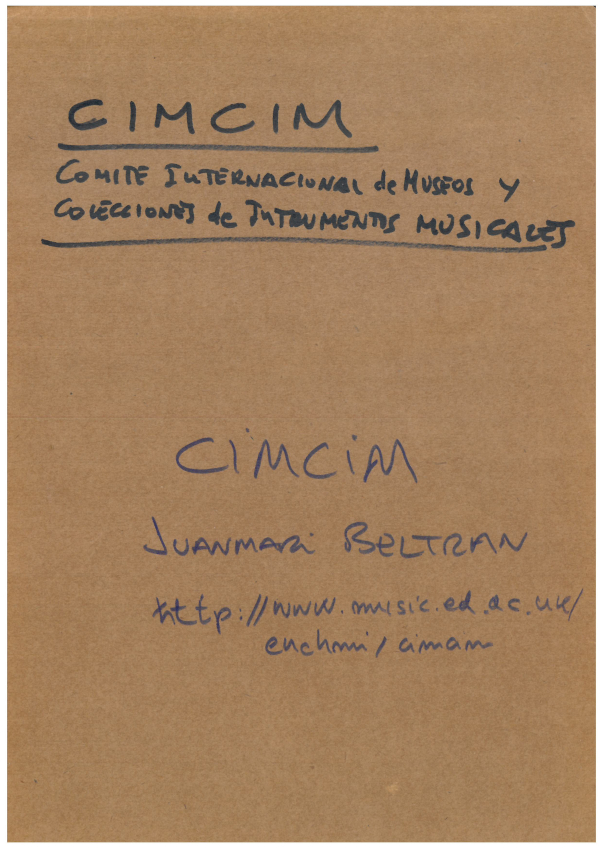 CIMCIM
COMITE INTERNACIONAL de MUSEOS Y
COLECCIONES de INTRUMENTOS MUSICALES
CiMCiM
JUANMARi BELTRAN
http://www.music.ed.ac.uk/
euchmi/